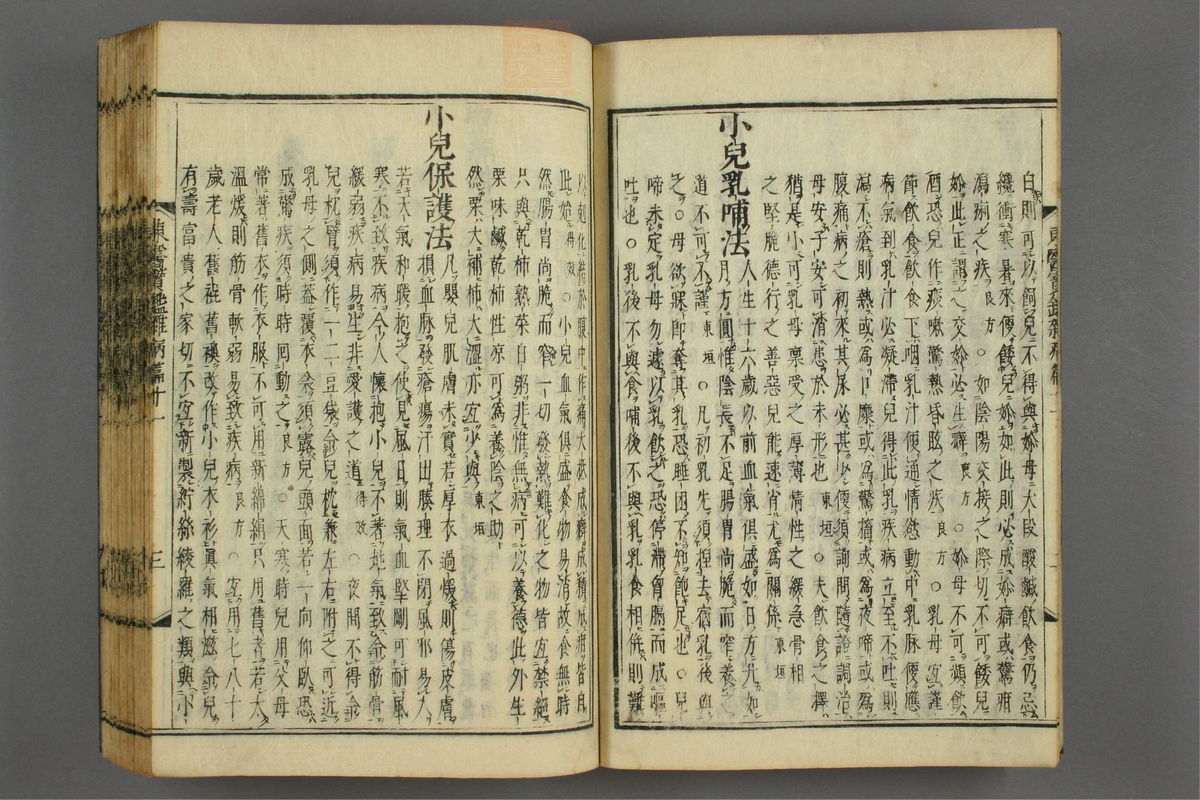 白則可以飼兒不得與奶母大段酸鹹飲食仍忌
纔衝寒暑來便餧兒奶如此則必成奶癖或驚疳
瀉痢之疾良方○如陰陽交接之際切不可餧兒
奶此正謂之交奶必生癖良方○奶母不可頻飲
酒恐兒作痰嗽驚熱昏眩之疾良方○乳母宜謹
節飲食飲食下咽乳汁便通情慾動中乳脉便應
病氣到乳汁必凝滯兒得此乳疾病立至不吐則
瀉不瘡則熱或爲口糜或爲驚搐或爲夜啼或爲
腹痛病之初來其尿必甚少便須詢問隨證調治
母安子安可消患於未形也東垣○夫飲食之擇
猶是小可乳母稟受之厚薄情性之緩急骨相
之堅脆德行之善惡兒能速肖尤爲關係東垣
小兒乳哺法
人生十六歲以前血氣俱盛如日方升如
月方圓惟陰長不足腸胃尚脆而窄養之
道不可不謹東垣○凡初乳先須捏去宿乳後與
之○母欲寐卽奪其乳恐睡困不知飽足也○兒
啼未定乳母勿遽以乳飲之恐停滯胷膈而成嘔
吐也○乳後不與食哺後不與乳乳食相倂則難
以剋化結於腹中作痛大抵成癖成積成疳皆自
此始得效○小兒血氣俱盛食物易消故食無時
然腸胃尚脆而窄一切發熱難化之物皆宜禁絶
只與乾柿熟菜白粥非惟無病可以養德此外生
栗味鹹乾柿性凉可爲養陰之助
然栗大補柿大澁亦宜少與東垣
小兒保護法
凡嬰兒肌膚未實若厚衣過煖則傷皮膚
損血脉發瘡瘍汗出腠理不閉風邪易入
若天氣和暖抱之使見風日則氣血堅剛可耐風
寒不致疾病今人懷抱小兒不著地氣致令筋骨
緩弱疾病易生非愛護之道得效○夜間不得令
兒枕臂須作一二豆袋令兒枕兼左右附之可近
乳母之側蓋覆衣衾須露兒頭面若一向仰臥恐
成驚疾須時回動之良方○天寒時兒用父母
常著舊衣作衣服不可用新綿絹只用舊者若太
溫煖則筋骨軟弱易致疾病良方○宜用七八十
歲老人舊裩舊襖改作小兒衣衫眞氣相滋令兒
有壽富貴之家切不宜新製紵絲綾羅之類與小
東醫寶鑑雜病篇十一
三